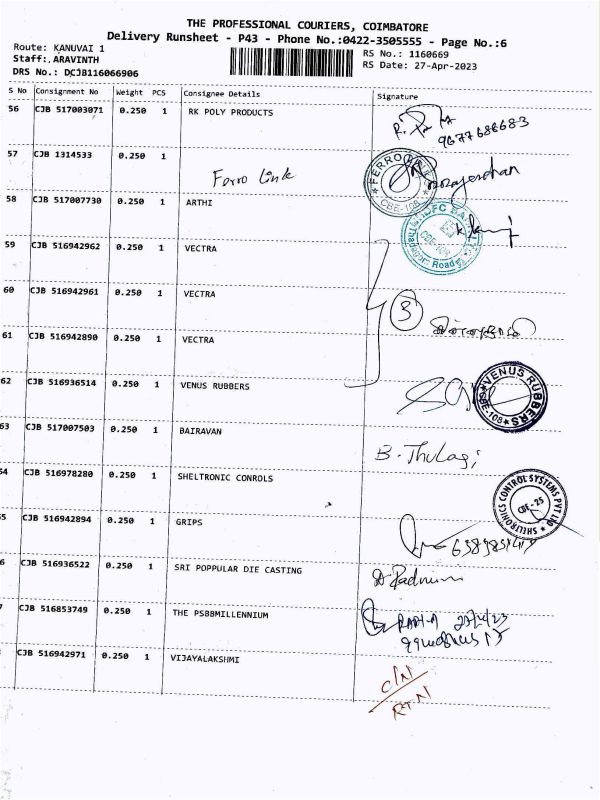 THE PROFESSIONAL COURIERS, COIMBATORE
Delivery Runsheet - P43 - Phone No.:0422-3505555 - Page No.:6
Route: KANUVAI 1
Staff: ARAVINTH
DRS No.: DCJB116066906
RS No.: 1160669
RS Date: 27-Apr-2023
S No Consignment No Weight PCS Consignee Details Signature
56 CJB 517003071 0.250 1 RK POLY PRODUCTS
9677686683
57 CJB 1314533 0.250 1
Ferro Link
58 CJB 517007730 0.250 1 ARTHI
CBE-108
59 CJB 516942962 0.250 1 VECTRA
60 CJB 516942961 0.250 1 VECTRA
3
61 CJB 516942890 0.250 1 VECTRA
62 CJB 516936514 0.250 1 VENUS RUBBERS
VENUS RUBBERS
CBE-108
63 CJB 517007503 0.250 1 BAIRAVAN
B. Thulasi
54 CJB 516978280 0.250 1 SHELTRONIC CONROLS
SHELTRONICS CONTROL SYSTEMS PVT LTD
CBE-25
55 CJB 516942894 0.250 1 GRIPS
6 CJB 516936522 0.250 1 SRI POPPULAR DIE CASTING
7 CJB 516853749 0.250 1 THE PSBBMILLENNIUM
CJB 516942971 0.250 1 VIJAYALAKSHMI
C/N
RTN